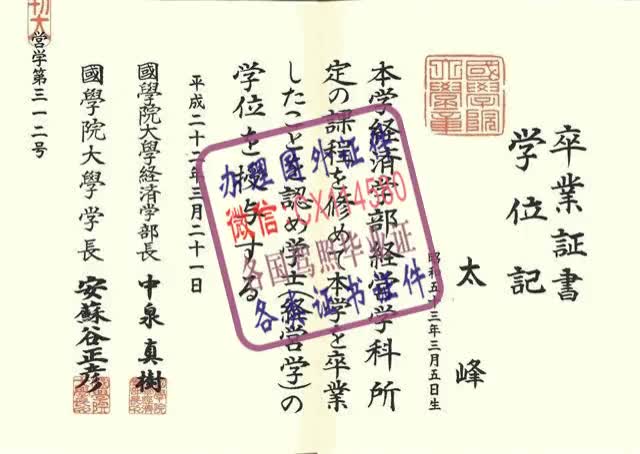 卒業証書
学位記
太　峰
昭和五十三年三月五日生
本学経済学部経営学科所
定の課程を修めて本学を卒業
したことを認め学士(経営学)の
学位を授与する
平成二十二年三月二十一日
國學院大學経済学部長　中泉真樹
國學院大學学長　安蘇谷正彦
営学第三一二号
國學院大學章
办理国外证件
微信:CX114580
各国驾照毕业证
各类证书证件